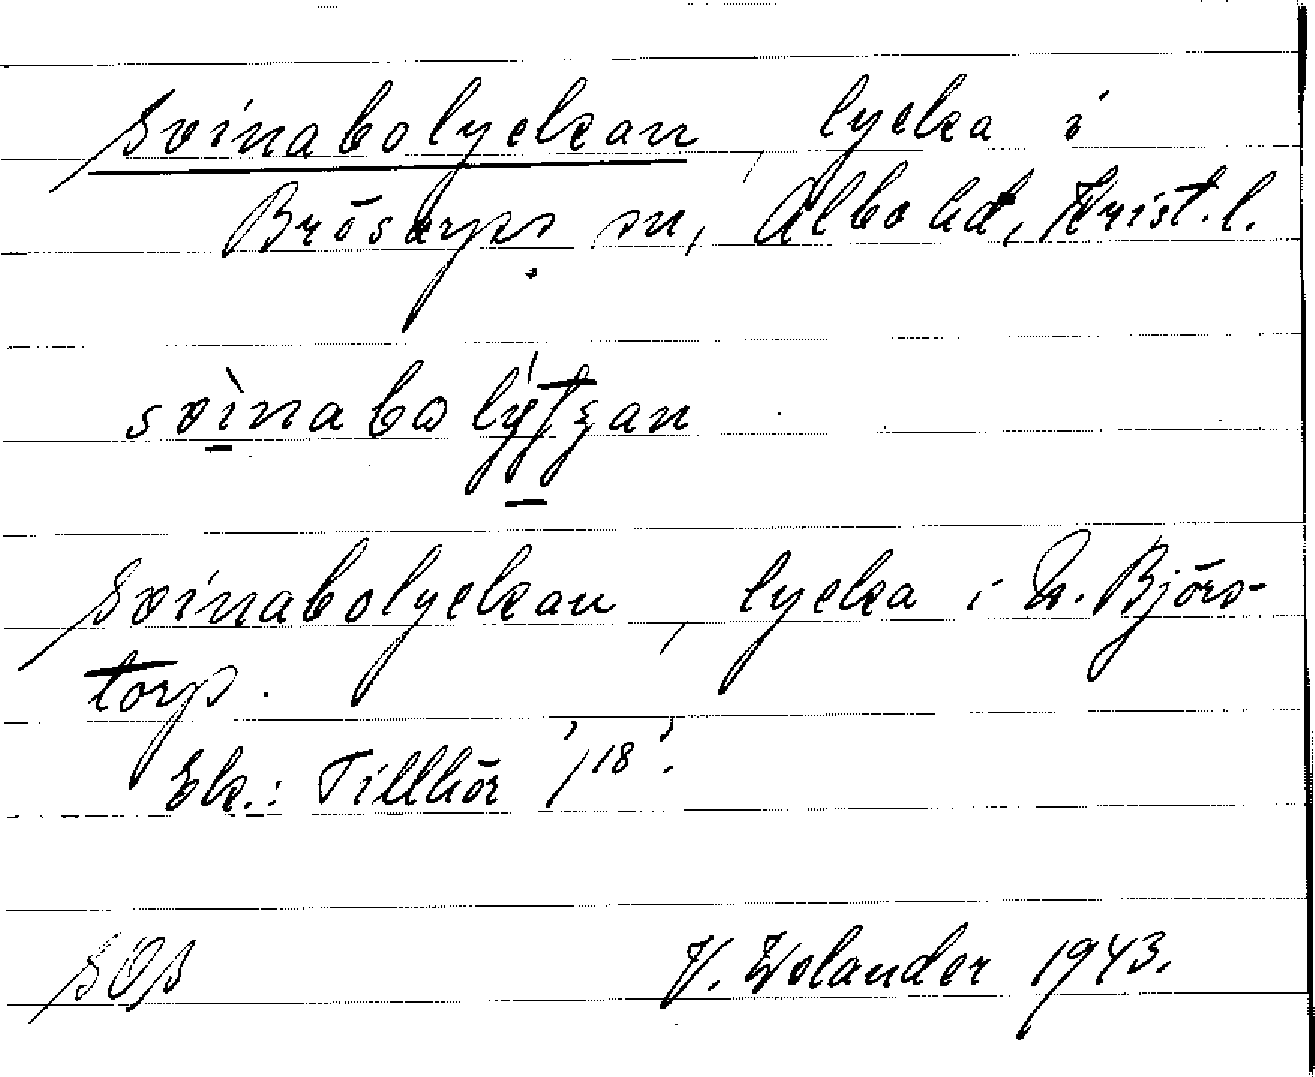 Svinabolyckan, lycka i
Brösarps sn, Albo hd, Krist. l.
svìnabolýtʃan
Svinabolyckan, lycka i N. Björs-
torp.
Ek.: Tillhör '/18'.
SOS V. Welander 1943.